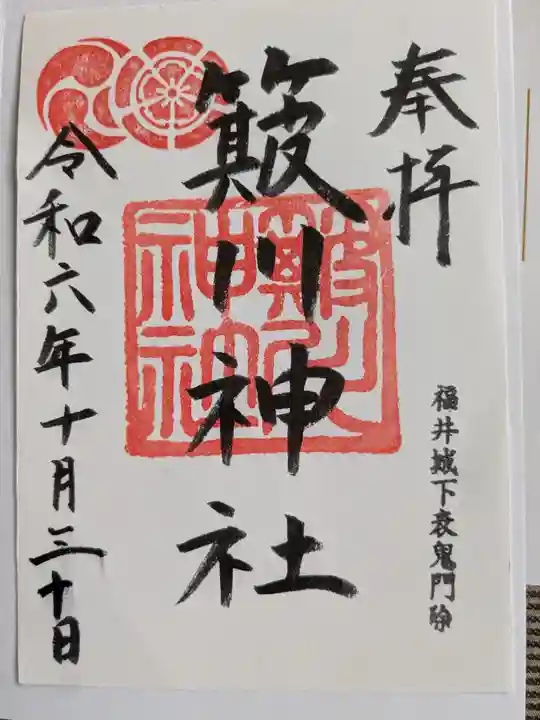 奉拝
福井城下裏鬼門除
簸川神社
令和六年十月三十日